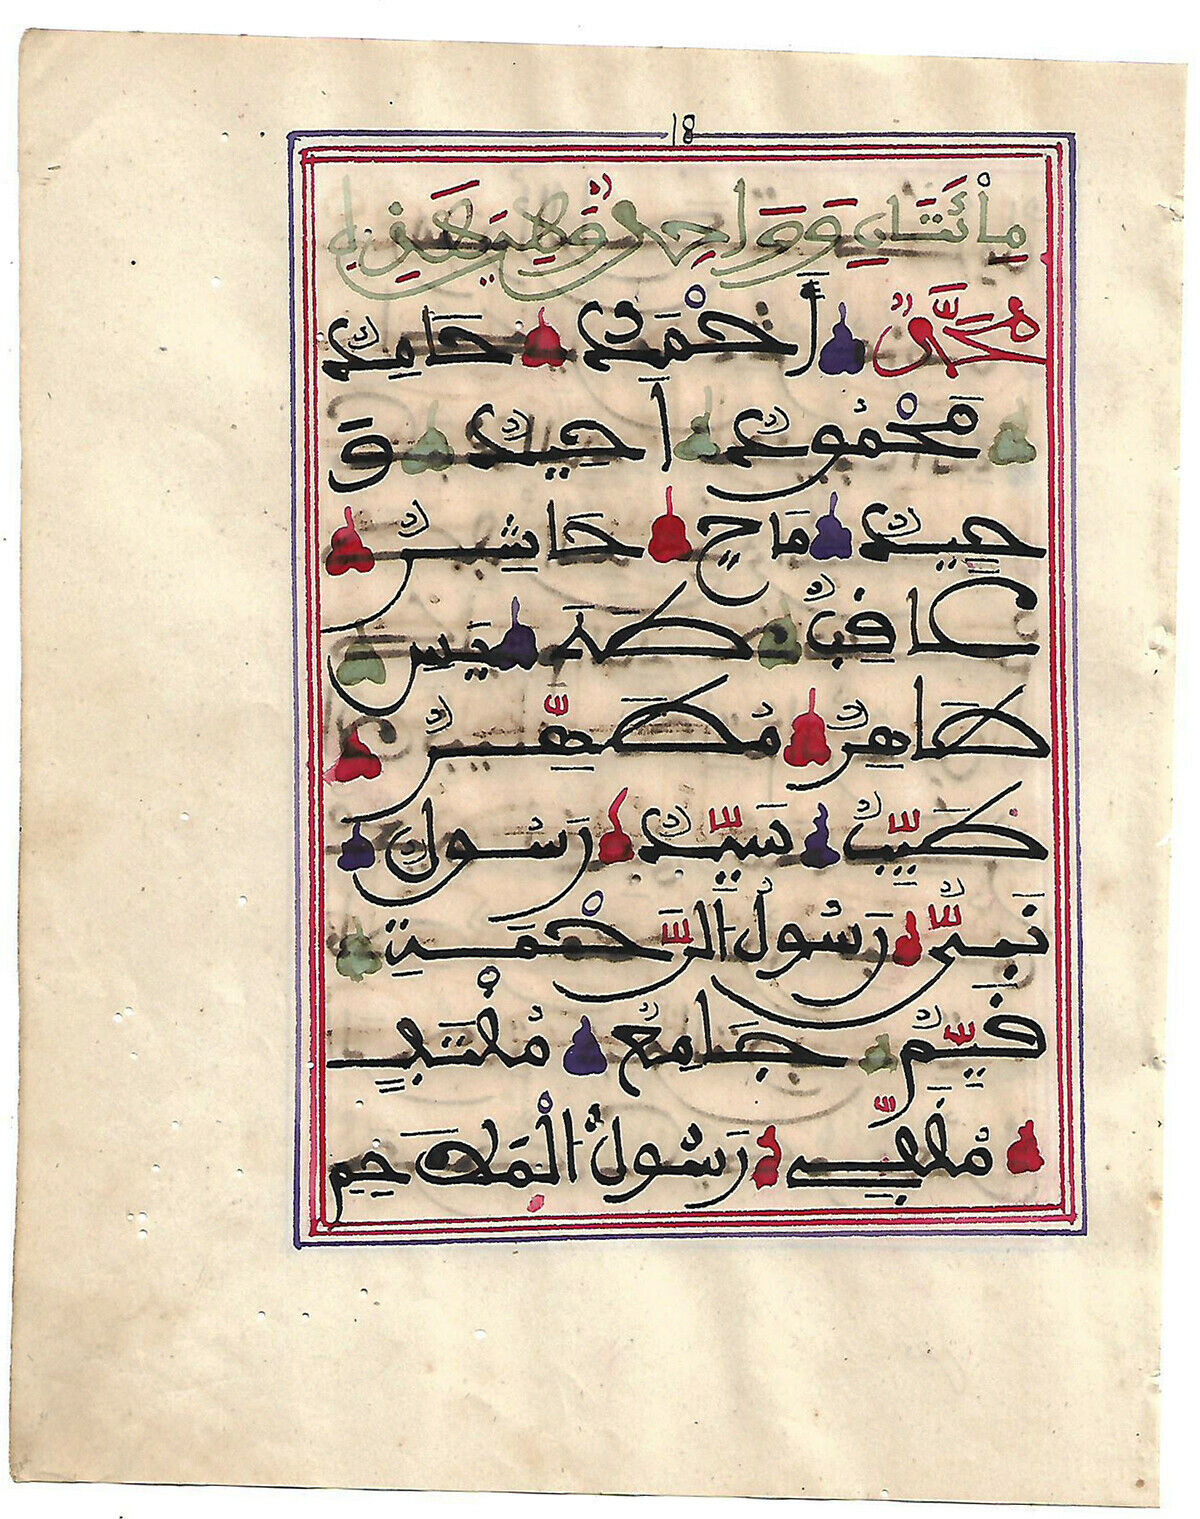 18
مِائَتَانِ وَوَاحِدٌ وَهِيَ هَذِهِ
مُحَمَّدٌ أَحْمَدُ حَامِدٌ
مَحْمُودٌ أَحِيدٌ وَ
حِيدٌ مَاحٍ حَاشِرٌ
عَاقِبٌ طَهَ يَس
طَاهِرٌ مُطَهَّرٌ
طَيِّبٌ سَيِّدٌ رَسُولٌ
نَبِيٌّ رَسُولُ الرَّحْمَةِ
قَيِّمٌ جَامِعٌ مُقْتَفٍ
مُقَفًّى رَسُولُ الْمَلَاحِمِ